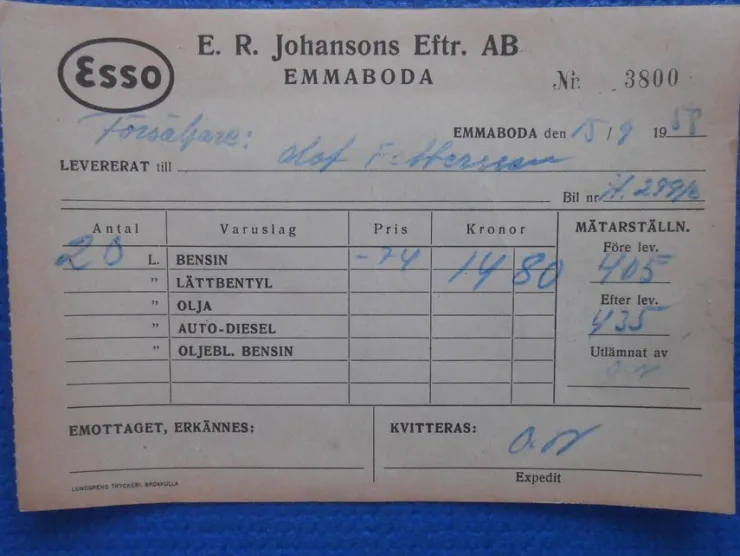 Esso
E. R. Johansons Eftr. AB
EMMABODA
Nr. 3800
Försäljare:
EMMABODA den 15/9 1958
LEVERERAT till Olof Pettersson
Bil nr
Antal Varuslag Pris Kronor MÄTARSTÄLLN.
20 L. BENSIN -74 14 80 Före lev.
405
" LÄTTBENTYL
" OLJA Efter lev.
435
" AUTO-DIESEL
" OLJEBL. BENSIN Utlämnat av
EMOTTAGET, ERKÄNNES: KVITTERAS:
Expedit
LUNDGRENS TRYCKERI, BROAKULLA